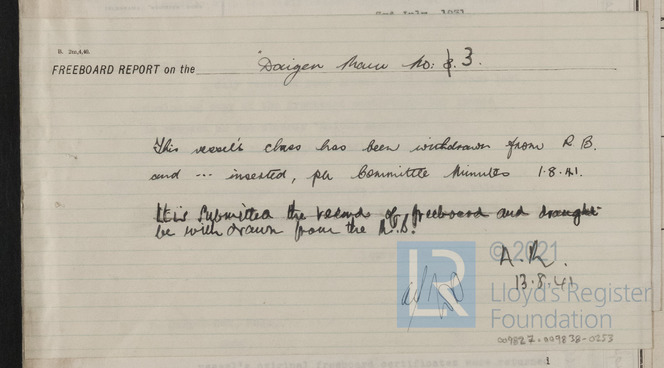 2nd July, 1931
B. 2m,4,40.
FREEBOARD REPORT on the Daigen Maru No: 3.
This vessel's class has been withdrawn from R.B.
and --- inserted, per Committee Minutes 1.8.41.
It is submitted the record of freeboard and draught
be withdrawn from the R.B.
© 2021
A.R.
13.8.41
LR
Lloyd's Register
Foundation
009827-009838-0253